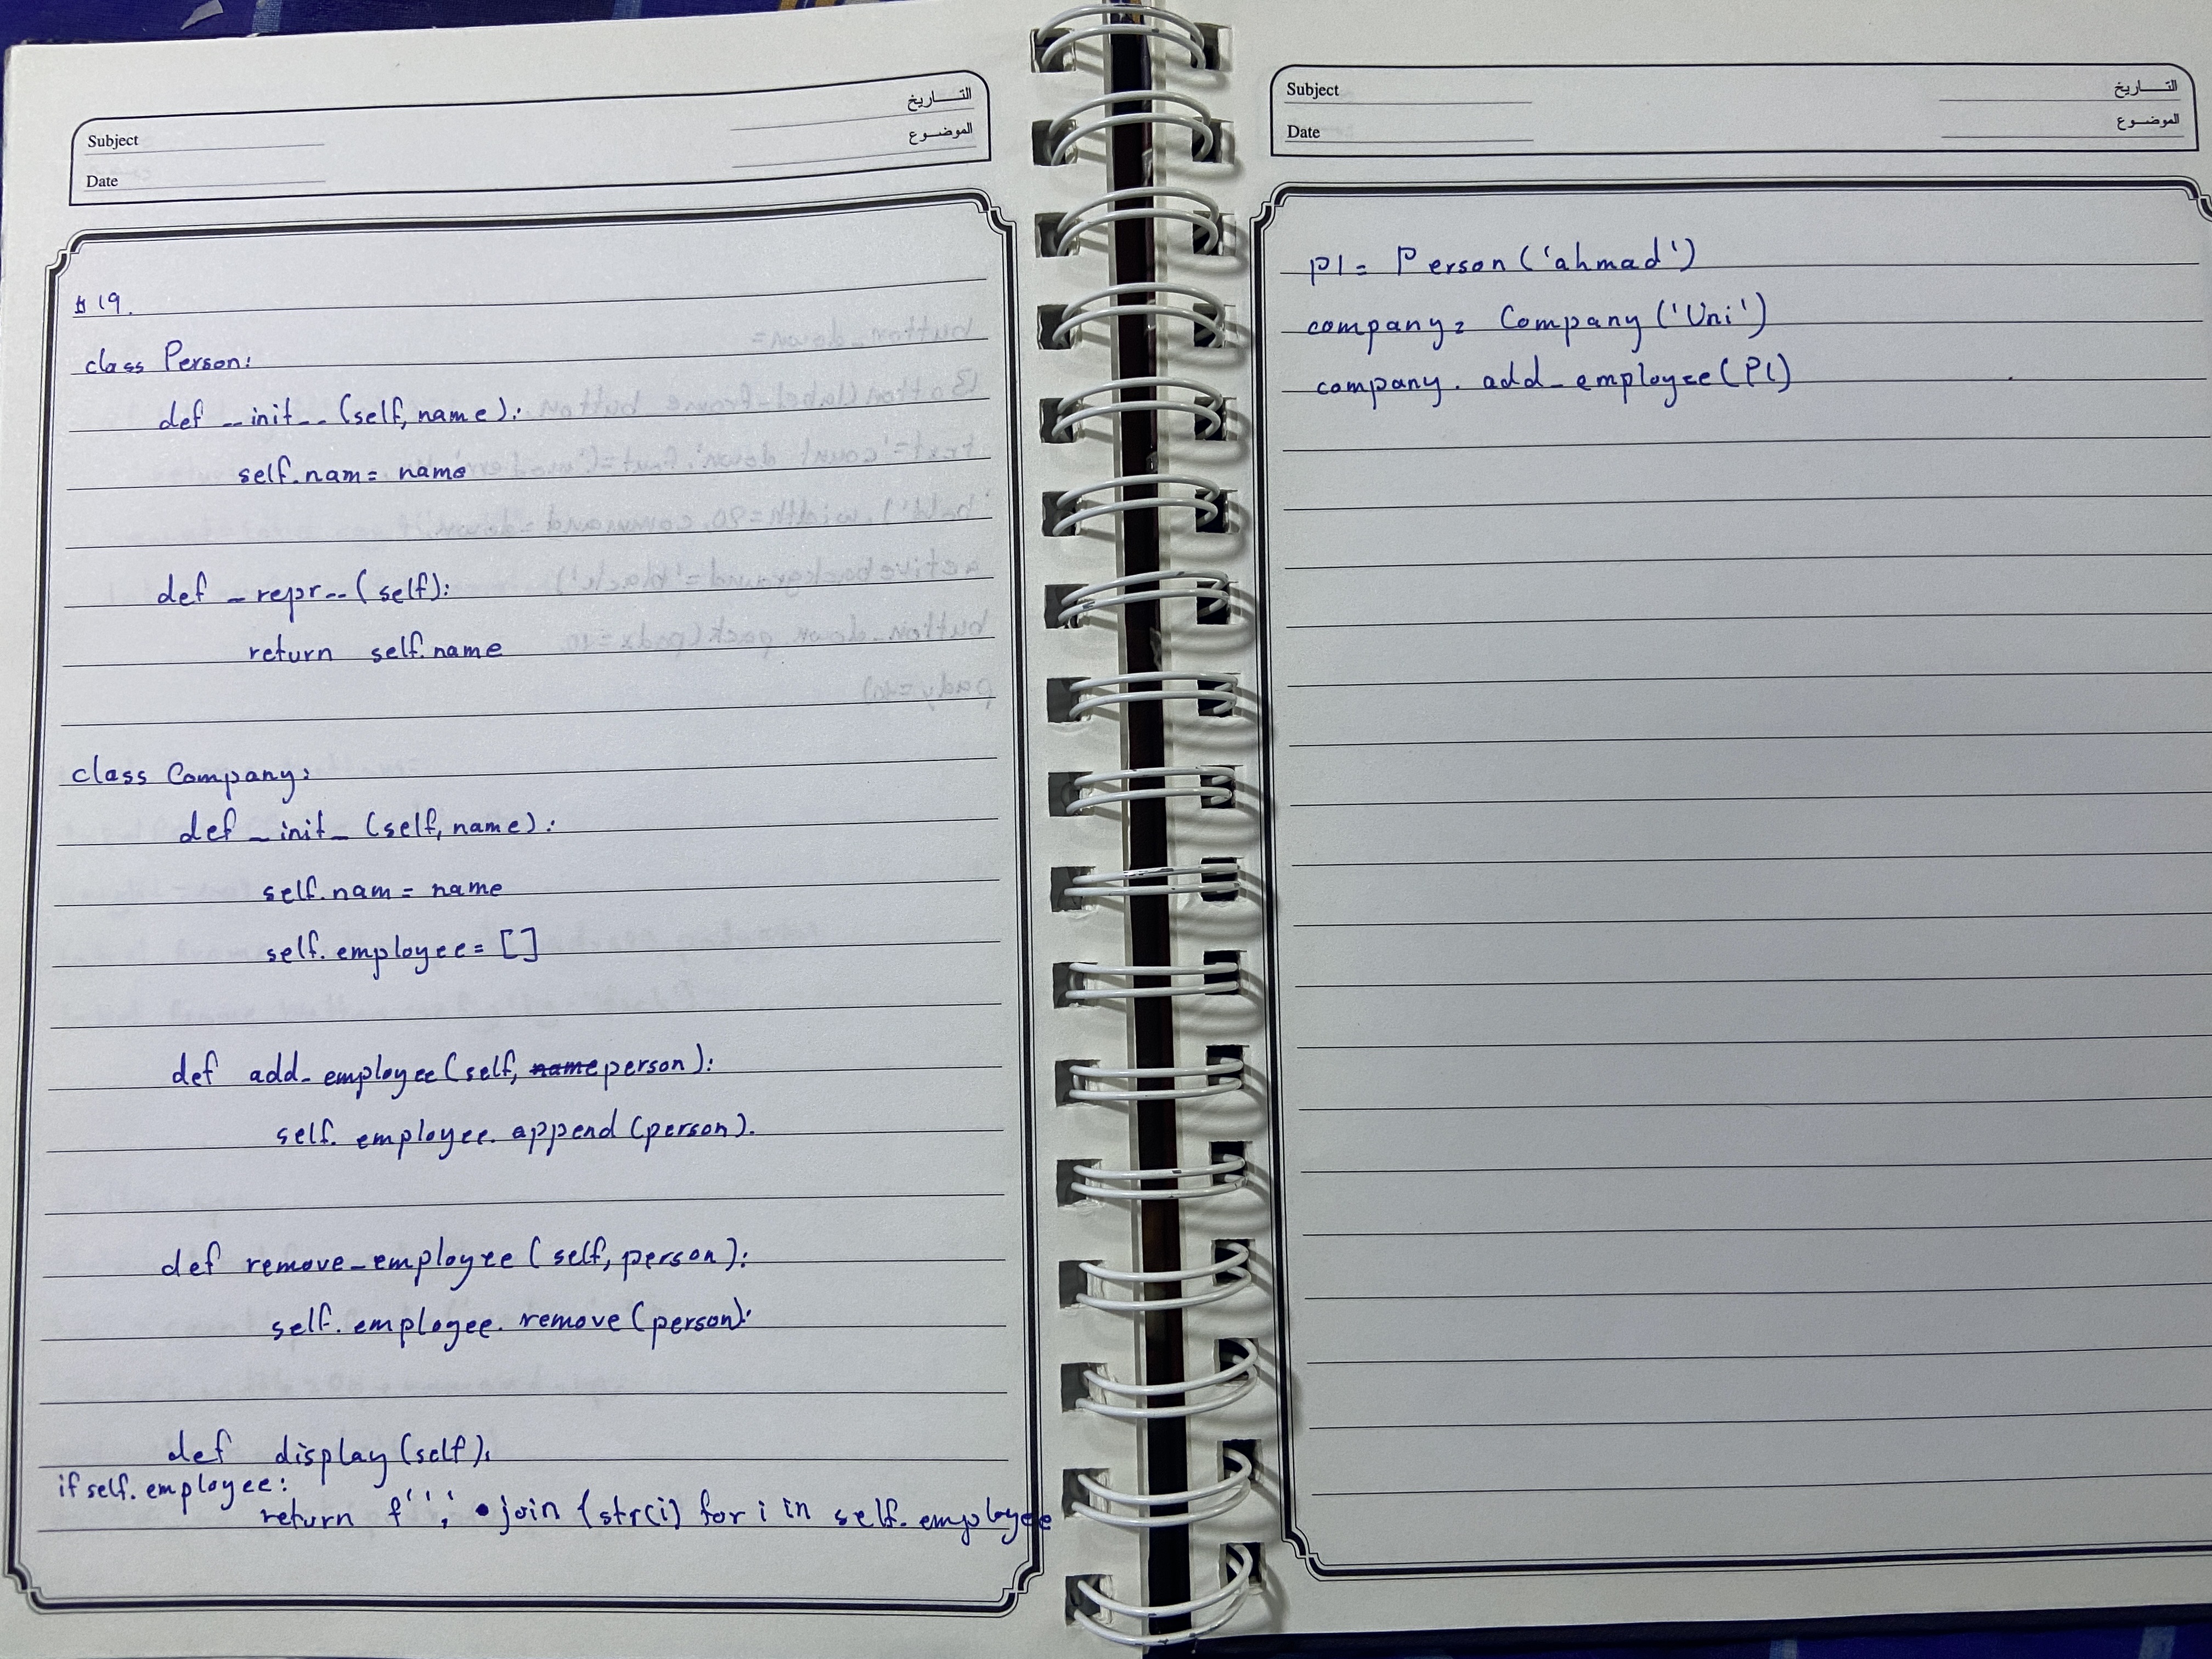 Subject
Date
التـــاريخ
الموضـــوع
# 19.
class Person:
def __init__(self, name):
self.nam= name
def _repr__(self):
return self.name
class Company:
def _init_ (self, name):
self.nam = name
self.employee = []
def add_employee(self, name person):
self.employee.append(person).
def remove_employee(self, person):
self.employee.remove(person):
def display(self):
if self.employee:
return f'', •join(str(i) for i in self.employee
Subject
Date
التـــاريخ
الموضـــوع
P1= Person('ahmad')
company= Company('Uni')
company.add_employee(P1)